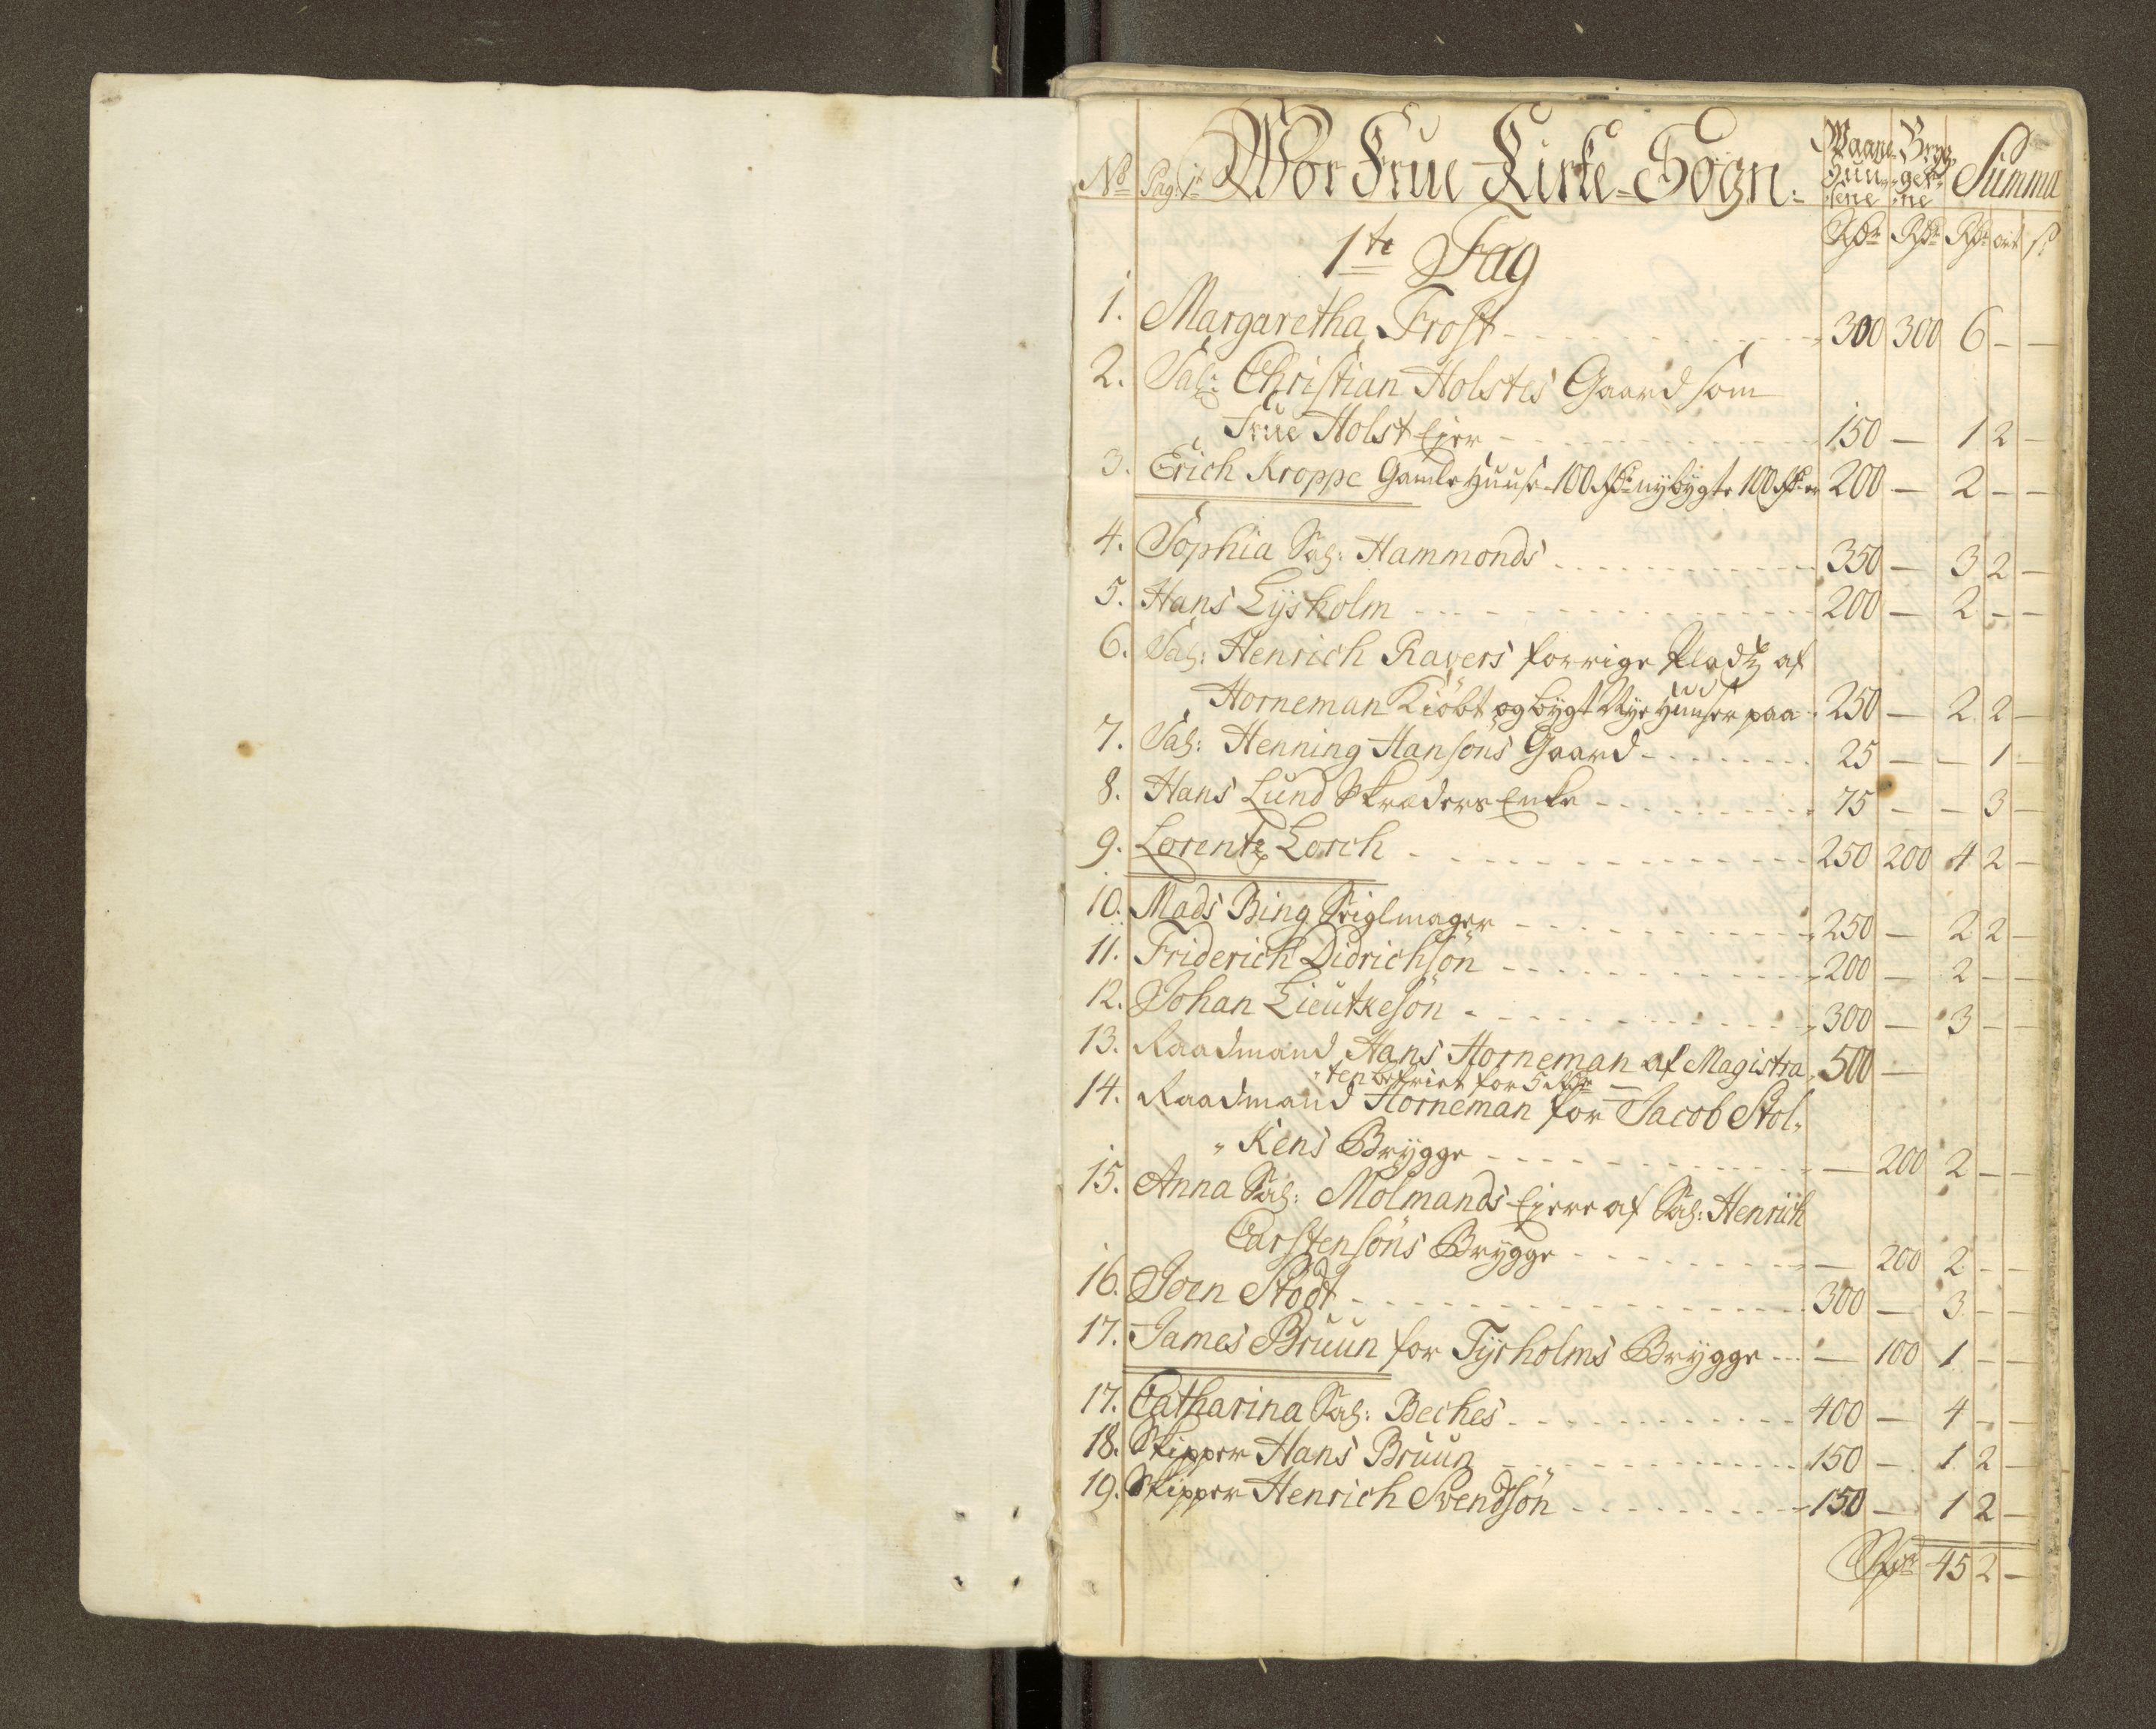 No Pag: 1 Wor Frue Kirke-Sogn. Waane- Bryg- Summa
Huu- -ger-
-sene -ne
1te Fag Rdr Rdr Rdr ort s:
1. Margaretha Frost - - - 300 300 6 - -
2. Sal: Christian Holstes Gaard som
Frue Holst Ejer - - - 150 - 1 2 -
3. Erich Kroppe Gamle Huuse 100 Rdr nybygte 100 Rdr er 200 - 2 - -
4. Sophia Sal: Hammonds - - - 350 - 3 2 -
5. Hans Lysholm - - - 200 - 2 - -
6. Sal: Henrich Ravers forrige Pladtz af
Horneman Kiöbt og bygt Nye Huuser paa 250 - 2 2 -
7. Sal: Henning Hansöns Gaard - - - 25 - - 1 -
8. Hans Lund Skræders Enke - - - 75 - - 3 -
9. Lorentz Lorch - - - 250 200 4 2 -
10. Mads Bing Seiglmager - - - 250 - 2 2 -
11. Friderich Didrichsön - - - 200 - 2 - -
12. Johan Lieutkesön - - - 300 - 3 - -
13. Raadmand Hans Horneman af Magistra 500 -
"ten befriet for 5 Rdr -
14. Raadmand Horneman for Jacob Stol"
"Kens Brygge - - - - 200 2 - -
15. Anna Sal: Molmands Ejere af Sal: Henrich
Carstensöns Brygge - - - - 200 2 - -
16. Joen Stodt - - - 300 - 3 - -
17. James Bruun for Tyrholms Brygge - - - - 100 1 - -
17. Catharina Sal: Beches - - - 400 - 4 - -
18. Skipper Hans Bruun - - - 150 - 1 2 -
19. Skipper Henrich Svendsön - - - 150 - 1 2 -
Rdr 45 2 -